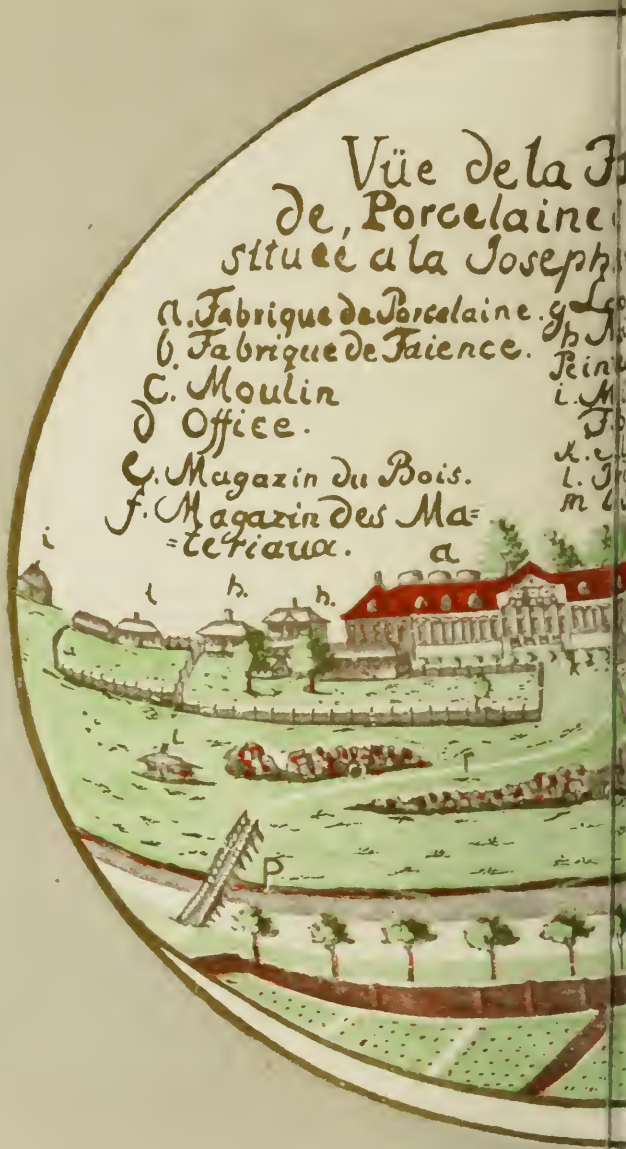 Vüe de la
de, Porcelaine
située a la Joseph
a. Fabrique de Porcelaine.
b. Fabrique de Faience.
C. Moulin
d Office.
e. Magazin du Bois.
f. Magazin des Ma=
=teriaux.
g
h
i. M
k.
l.
m
a
i
i
h.
h.
k
i
r
P